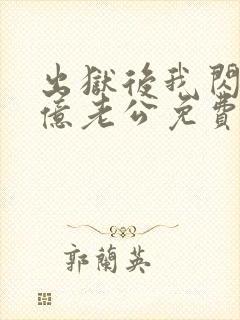 出獄後我閃
億老公免費
郭蘭英